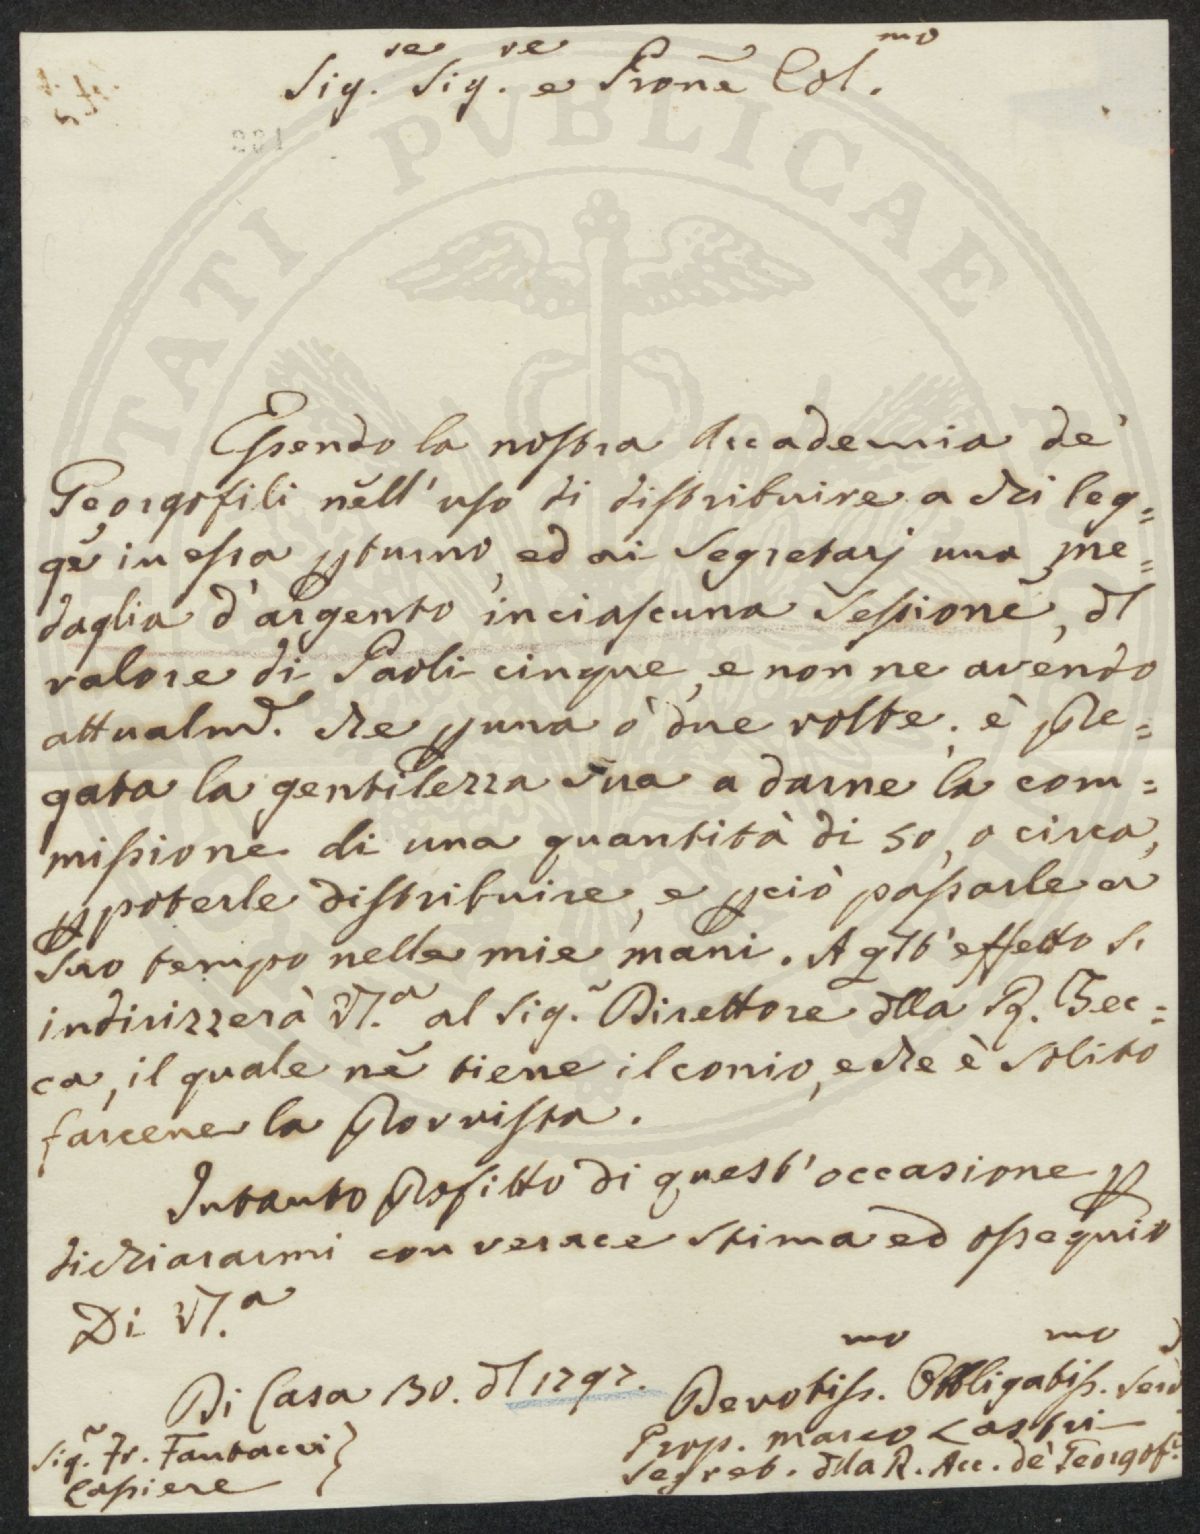 Sig.re Sig.re e Prone Col.mo
Essendo la nostra Accademia de'
Georgofili nell'uso di distribuire a chi leg=
ge in essa p turno, ed ai Segretarj una me=
daglia d'argento in ciascuna Sessione, dl
valore di Paoli cinque, e non ne avendo
attualmte. che p una o due volte, è pre=
gata la gentilezza sua a darne la com=
missione di una quantità di 50, o circa,
p poterle distribuire, e p ciò passarle a
suo tempo nelle mie mani. A qst'effetto si
indirizzerà VS.a al Sig.r Direttore dlla R. Zec=
ca, il quale ne tiene il conio, e che è solito
farcene la provvista.
Intanto profitto di quest'occasione p
dichiararmi con verace stima ed ossequio
Di VS.a
Di Casa dl 1797.
Devotiss.mo Obbligatiss.mo
Prop. Marco Lastri
Segret. dlla R. Acc. de' Georgof.
Sig.r Fr. Fantacci
Cassiere
TATI PVBLICAE